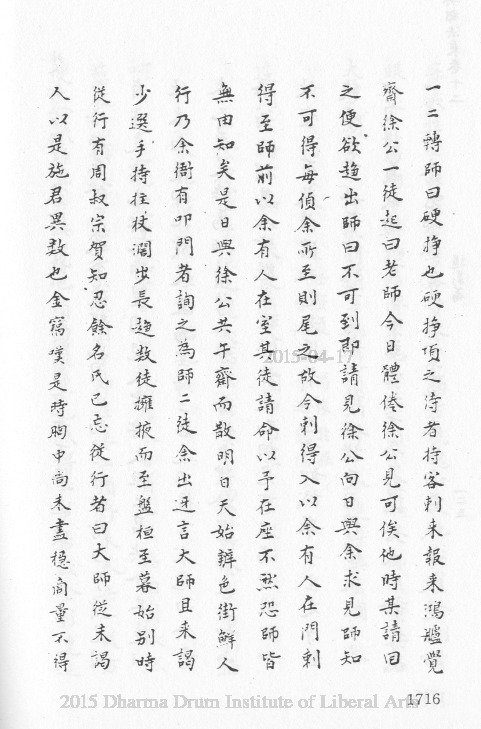 一二轉師曰硬掙也硬掙頃之侍者持客刺来報来鴻臚覺
齋徐公一徒起曰老師今日體倦徐公見可俟他時某請回
之便欲趋出師曰不可到即請見徐公向日與余求見師知
不可得每偵余所至則尾之故今刺得入以余有人在門刺
得至師前以余有人在室其徒請命以予在座不然恐師皆
無由知矣是日與徐公共午齋而散明日天始辨色街鮮人
行乃余衙有叩門者詢之為師二徒余出迓言大師且来謁
少選手持拄杖濶步長趋数徒擁掖而至盤桓至暮始別時
從行有周叔宗賀知忍餘名氏已忘從行者曰大師從未謁
人以是施君異数也金寫嘆是時胸中尚未盡穏商量不得
2015-04-17
1716
2015 Dharma Drum Institute of Liberal Arts